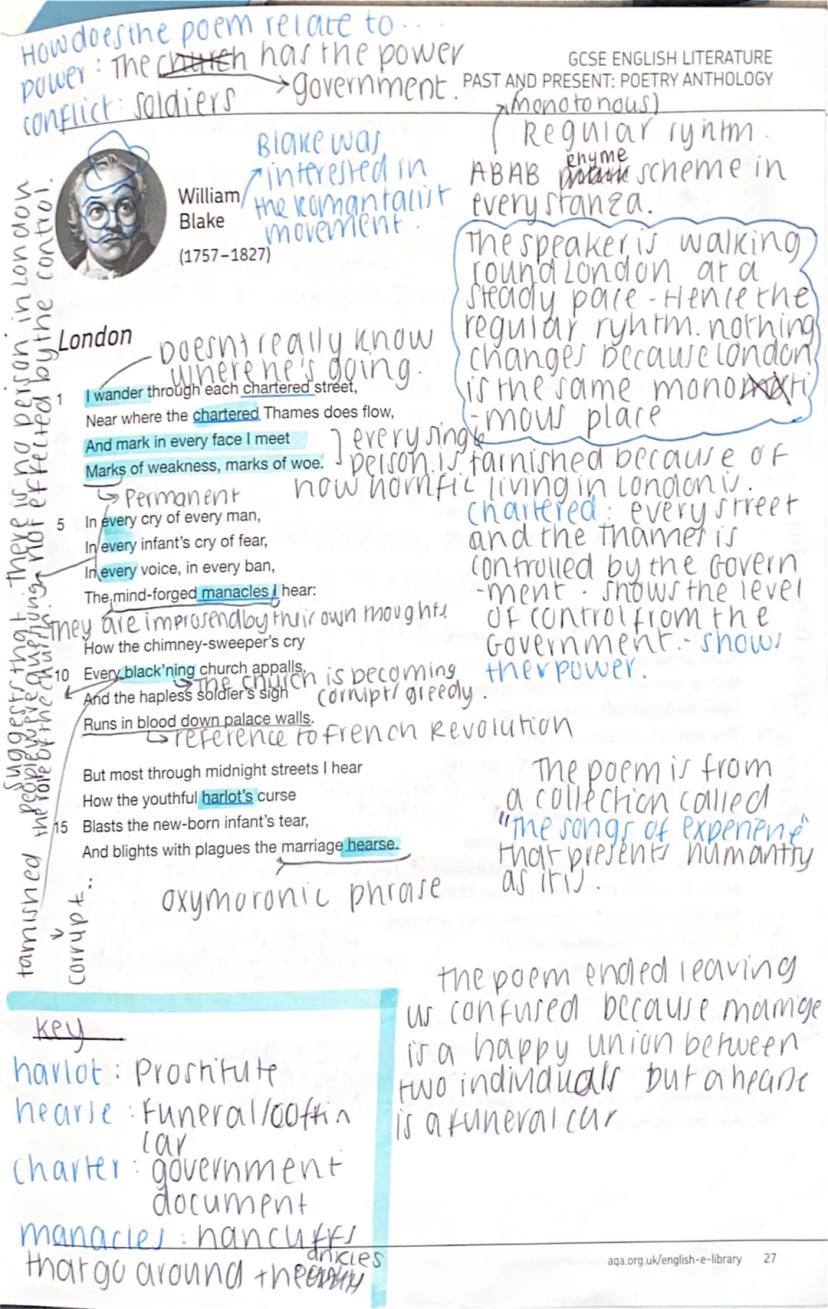 How does the poem relate to...
power: The church has the power
government.
conflict: soldiers
GCSE ENGLISH LITERATURE
PAST AND PRESENT: POETRY ANTHOLOGY
(monotonous)
Regular ryhtm.
ABAB rhyme scheme in
every stanza.
Blake was
interested in
the Romantacist
movement.
William
Blake
(1757–1827)
The speaker is walking
round London at a
steady pace - Hence the
regular ryhtm. nothing
changes because London
is the same mono
-mous place
London
Doesn't really know
where he's going.
1 I wander through each chartered street,
Near where the chartered Thames does flow,
And mark in every face I meet
Marks of weakness, marks of woe.
every single
person is tarnished because of
how horrific living in London is.
Permanent
5 In every cry of every man,
In every infant's cry of fear,
In every voice, in every ban,
The mind-forged manacles I hear:
They are improsend by their own thoughts
chartered: every street
and the Thames is
controlled by the Govern
-ment. shows the level
of control from the
Government. shows
their power.
How the chimney-sweeper's cry
10 Every black'ning church appalls,
And the hapless soldier's sigh
Runs in blood down palace walls.
The church is becoming
corrupt/greedy.
reference to French Revolution
But most through midnight streets I hear
How the youthful harlot's curse
15 Blasts the new-born infant's tear,
And blights with plagues the marriage hearse.
oxymoronic phrase
The poem is from
a collection called
"the songs of experiene"
that presents humantiy
as it is.
suggests that there is no person in London
not effected by the control.
tarnished
corrupt..
the poem ended leaving
us confused because marriage
is a happy union between
two individuals but a hearse
is a funeral car
key
harlot: Prostitute
hearse: funeral/coffin
car
charter: government
document
manacles: hancuffs
that go around the ankles
aqa.org.uk/english-e-library 27